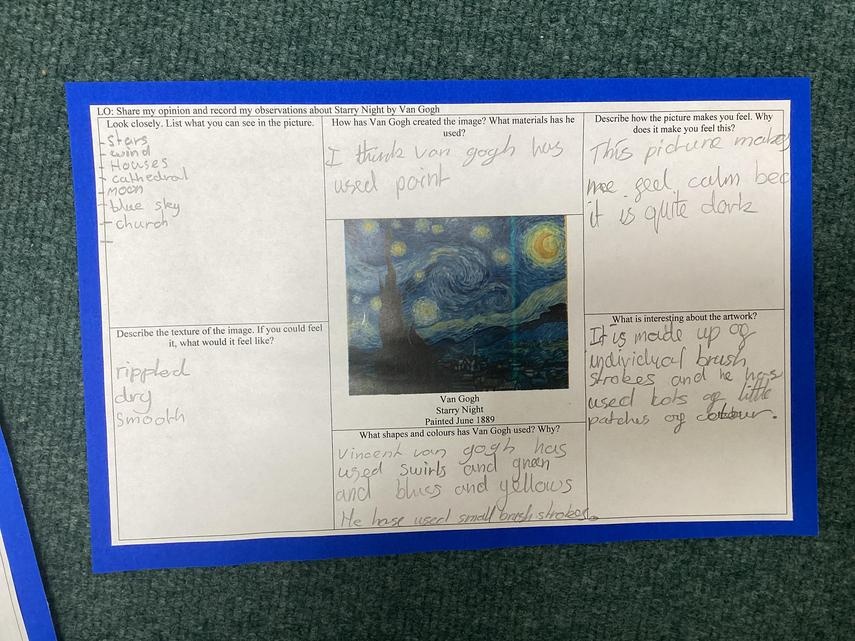 LO: Share my opinion and record my observations about Starry Night by Van Gogh
Look closely. List what you can see in the picture.
- Stars
- wind
- Houses
- cathedral
- moon
- blue sky
- church
-
How has Van Gogh created the image? What materials has he
used?
I think van gogh has
used paint
Describe how the picture makes you feel. Why
does it make you feel this?
This picture makes
me feel calm bec
it is quite dark
Describe the texture of the image. If you could feel
it, what would it feel like?
rippled
dry
smooth
Van Gogh
Starry Night
Painted June 1889
What shapes and colours has Van Gogh used? Why?
Vincent van gogh has
used swirls and green
and blues and yellows
He hase used small brush strokes.
What is interesting about the artwork?
It is made up of
individual brush
strokes and he has
used lots of little
patches of colour.